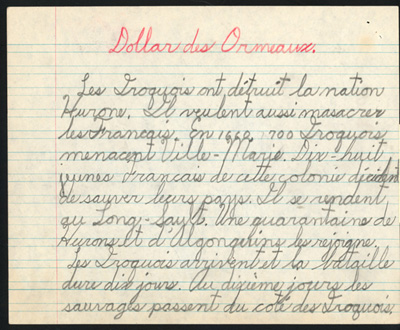 Dollar des Ormeaux.
Les Iroquois ont détruit la nation
Hurone. Il veulent aussi masacrer
les Français. En 1660, 700 Iroquois
menacent Ville-Marie. Dix-huit
jeunes Français de cette colonie décident
de sauver leurs pays. Il se rendent
au Long-Sault. Une quarantaine de
Hurons et d'Algonquins les rejoigne.
Les Iroquois arrivent et la bataille
dure dix jours. Au dixième jours les
sauvages passent du côté des Iroquois.